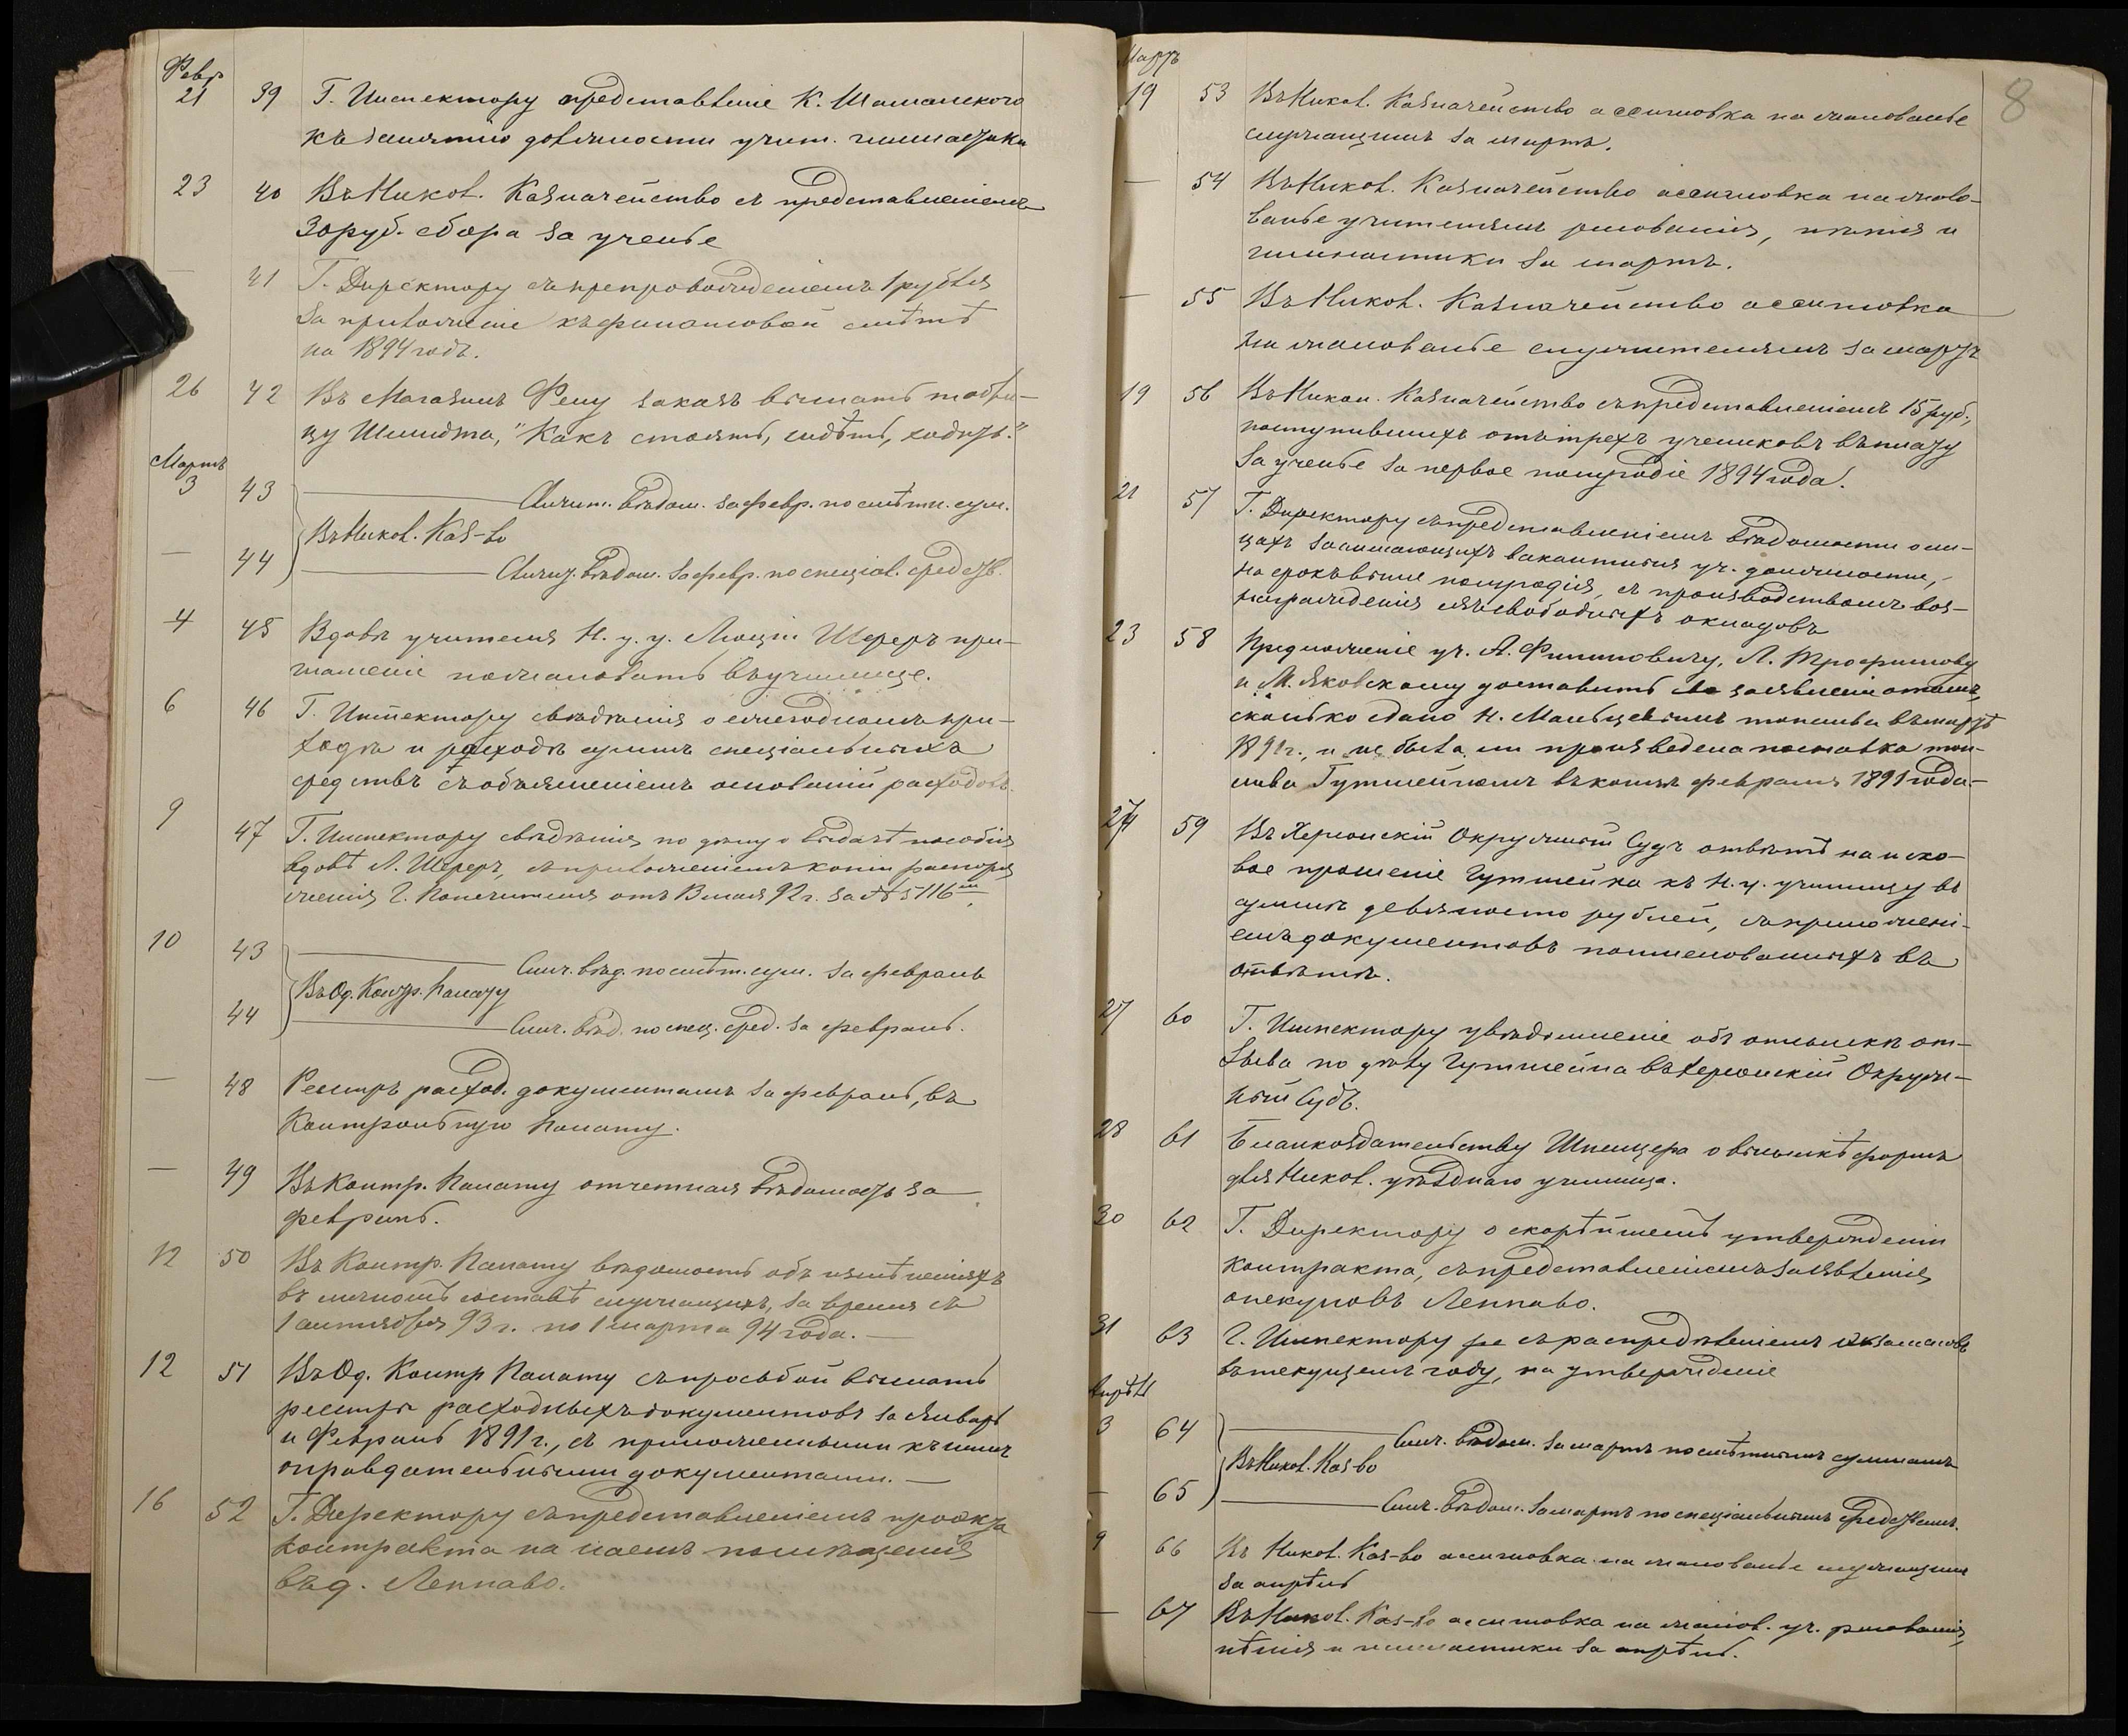 Февр
21 39 Г. Инспектору представленіе К. Шаманского
къ занятію должности учит. гимнастики
23 40 Въ Никол. Казначейство съ представленіемъ
30 руб. сбора за ученье
— 41 Г. Директору съ препровожденіемъ 1 рубля
за приложеніе къ финансовой смѣтѣ
на 1894 годъ.
26 42 Въ Магазинъ Фену заказъ выслать табли-
цу Шмидта, "Какъ стоять, сидѣть, ходить."
Мартъ
3 43 Свидѣт. вѣдом. за февр. по смѣтн. сум.
Въ Никол. Каз-во
— 44 вѣдом. за февр. по спеціал. средств.
4 45 Вдовѣ учителя Н. у. у. Люціи Шереръ при-
глашеніе пожаловать въ училище.
6 46 Г. Инспектору свѣдѣнія о ежегодномъ при-
ходѣ и расходѣ суммъ спеціальныхъ
средствъ съ объясненіемъ основаній расходовъ.
9 47 Г. Инспектору свѣдѣнія по дѣлу о выдачѣ пособія
вдовѣ Л. Шереръ, съ приложеніемъ копіи распоря
женія Г. Попечителя отъ 13 мая 92 г. за № 5116
10 43 Слич. вѣд. по смѣт. сум. за февраль
Въ Од. Контр. Палату
44 Слич. вѣд. по спец. сред. за февраль.
— 48 Реестръ расход. документамъ за февраль, въ
Контрольную Палату.
— 49 Въ Контр. Палату отчетная вѣдомость за
февраль.
12 50 Въ Контр. Палату вѣдомость объ измѣненіяхъ
въ личномъ составѣ служащихъ, за время съ
1 сентября 93 г. по 1 марта 94 года. —
12 51 Въ Од. Контр Палату съ просьбой выслать
реестры расходныхъ документовъ за Январь
и Февраль 1891 г., съ приложенными къ нимъ
оправдательными документами. —
16 52 Г. Директору съ представленіемъ проэкта
контракта на наемъ помѣщенія
въ д. Леппаво.
Мартъ
8
19 53 Въ Никол. Казначейство ассигновка на жалованье
служащимъ за мартъ.
— 54 Въ Никол. Казначейство ассигновка на жало-
ванье учителямъ рисованія, пѣнія и
гимнастики за мартъ.
— 55 Въ Никол. Казначейство ассигновка
на жалованье служителямъ за мартъ
19 56 Въ Никол. Казначейство съ представленіемъ 15 руб.,
поступившихъ отъ трехъ учениковъ въ плату
за ученье за первое полугодіе 1894 года.
21 57 Г. Директору съ представленіемъ вѣдомости о ли-
цахъ занимающихъ вакантныя уч. должности,
на срокъ выше полугодія, съ производствомъ воз-
награжденія изъ свободныхъ окладовъ
23 58 Предложеніе уч. А. Филиповичу, Л. Трофимову
и М. Яковскому доставить заявленія о томъ,
сколько сдано Н. Мальцевымъ топлива въ мартѣ
1891 г., и не была ли произведена поставка топ-
лива Гутшейномъ въ концѣ февраля 1891 года. —
24 59 Въ Херсонскій Окружный Судъ отвѣтъ на иско-
вое прошеніе Гутшейна къ Н. у. училищу въ
суммѣ девяносто рублей, съ приложені-
емъ документовъ поименованныхъ въ
отвѣтѣ.
27 60 Г. Инспектору увѣдомленіе объ отсылкѣ от-
зыва по дѣлу Гутшейна въ Херсонскій Окруж-
ный Судъ.
28 61 Бланкоздательству Шпенцера о высылкѣ формъ
для Никол. уѣзднаго училища.
30 62 Г. Директору о скорѣйшемъ утвержденіи
контракта, съ представленіемъ заявленія
опекуновъ Леппаво.
31 63 Г. Инспектору съ распредѣленіемъ экзаменовъ
въ текущемъ году, на утвержденіе
Апрѣль
3 64 Слич. вѣдом. за мартъ по смѣтнымъ суммамъ
Въ Никол. Каз-во
— 65 Слич. вѣдом. за мартъ по спеціальнымъ средствамъ.
9 66 Въ Никол. Каз-во ассигновка на жалованье служащимъ
за апрѣль
— 67 Въ Никол. Каз-во ассигновка на жалов. уч. рисованія,
пѣнія и гимнастики за апрѣль.